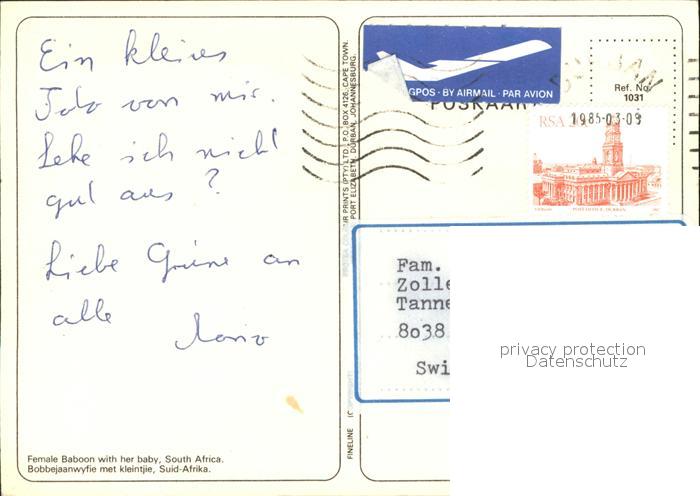 Ein kleines
Foto von mir.
Sehe ich nicht
gut aus?
Liebe Grüsse an
alle
Mario
Female Baboon with her baby, South Africa.
Bobbejaanwyfie met kleintjie, Suid-Afrika.
PORT ELIZABETH, DURBAN, JOHANNESBURG.
PRINTS (PTY) LTD., P.O. BOX 4126, CAPE TOWN.
FINELINE
GPOS · BY AIRMAIL · PAR AVION
POSKAART
Ref. No.
1031
1985-03-03
RSA
POST OFFICE, DURBAN
Fam.
Zolle
Tanne
8038
Swi
privacy protection
Datenschutz